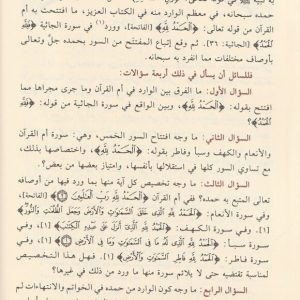 حمده سبحانه، في معظم الوارد منه في الكتاب العزيز، ما افتتحت به أم
القرآن من قوله تعالى: ﴿الْحَمْدُ لِلَّهِ﴾ [الفاتحة]، وورد(١) في سورة الجاثية: ﴿فَلِلَّهِ
الْحَمْدُ﴾ [الجاثية: ٣٦]. ثم وقع إتباع المفتتح من السور بحمده جلّ وتعالى
بأوصاف مختلفات مما انفرد به سبحانه.
فللسائل أن يسأل في ذلك أربعة سؤالات:
السؤال الأول: ما الفرق بين الوارد في أم القرآن وما جرى مجراها مما
افتتح بقوله: ﴿الْحَمْدُ لِلَّهِ﴾، وبين الواقع في سورة الجاثية من قوله: ﴿فَلِلَّهِ
الْحَمْدُ﴾؟
السؤال الثاني: ما وجه افتتاح السور الخمس، وهي: سورة أم القرآن
والأنعام والكهف وسبأ وفاطر بقوله: ﴿الْحَمْدُ لِلَّهِ﴾، واختصاصها بذلك،
مع تساوي السور كلها في استقلالها بأنفسها، وامتياز بعضها من بعض؟.
السؤال الثالث: ما وجه تخصيص كل آية منها بما ورد فيها من أوصافه
تعالى المتبع به حمده؟ ففي أم القرآن ﴿الْحَمْدُ لِلَّهِ رَبِّ الْعَالَمِينَ﴾ [الفاتحة]،
وفي سورة الأنعام: ﴿الْحَمْدُ لِلَّهِ الَّذِي خَلَقَ السَّمَاوَاتِ وَالْأَرْضَ وَجَعَلَ الظُّلُمَاتِ وَالنُّورَ﴾
[١]، وفي سورة الكهف: ﴿الْحَمْدُ لِلَّهِ الَّذِي أَنْزَلَ عَلَى عَبْدِهِ الْكِتَابَ﴾ [١]، وفي
سورة سبأ: ﴿الْحَمْدُ لِلَّهِ الَّذِي لَهُ مَا فِي السَّمَاوَاتِ وَمَا فِي الْأَرْضِ﴾ [١]، وفي
سورة فاطر: ﴿الْحَمْدُ لِلَّهِ فَاطِرِ السَّمَاوَاتِ وَالْأَرْضِ﴾ [١]، فهل هذا التخصيص
لمناسبة تقتضيه حتى لا يلائم سورة منها ما ورد من ذلك في غيرها؟
السؤال الرابع: ما وجه كون الوارد من حمده في الخواتم والانتهاءات لم